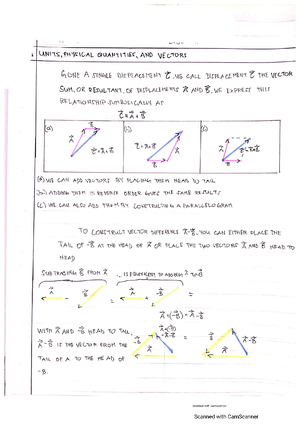 UNITS, PHYSICAL QUANTITIES, AND VECTORS
GIVEN A SINGLE DISPLACEMENT C⃗, WE CALL DISPLACEMENT C⃗ THE VECTOR
SUM, OR RESULTANT, OF DISPLACEMENTS A⃗ AND B⃗. WE EXPRESS THIS
RELATIONSHIP SYMBOLICALLY AS
C⃗ = A⃗ + B⃗
(a) (b) (c)
(a) WE CAN ADD VECTORS BY PLACING THEM HEAD TO TAIL
(b) ADDING THEM IN REVERSE ORDER GIVES THE SAME RESULTS
(c) WE CAN ALSO ADD THEM BY CONSTRUCTING A PARALLELOGRAM
TO CONSTRUCT VECTOR DIFFERENCE A⃗-B⃗, YOU CAN EITHER PLACE THE
TAIL OF -B⃗ AT THE HEAD OF A⃗ OR PLACE THE TWO VECTORS A⃗ AND B⃗ HEAD TO
HEAD
SUBTRACTING B⃗ FROM A⃗ ... IS EQUIVALENT TO ADDING
A⃗ - B⃗ = A⃗ + -B⃗ =
A⃗+(-B⃗) = A⃗-B⃗
WITH A⃗ AND -B⃗ HEAD TO TAIL,
A⃗-B⃗ IS THE VECTOR FROM THE
TAIL OF A TO THE HEAD OF
-B.
Scanned with CamScanner
Scanned with CamScanner